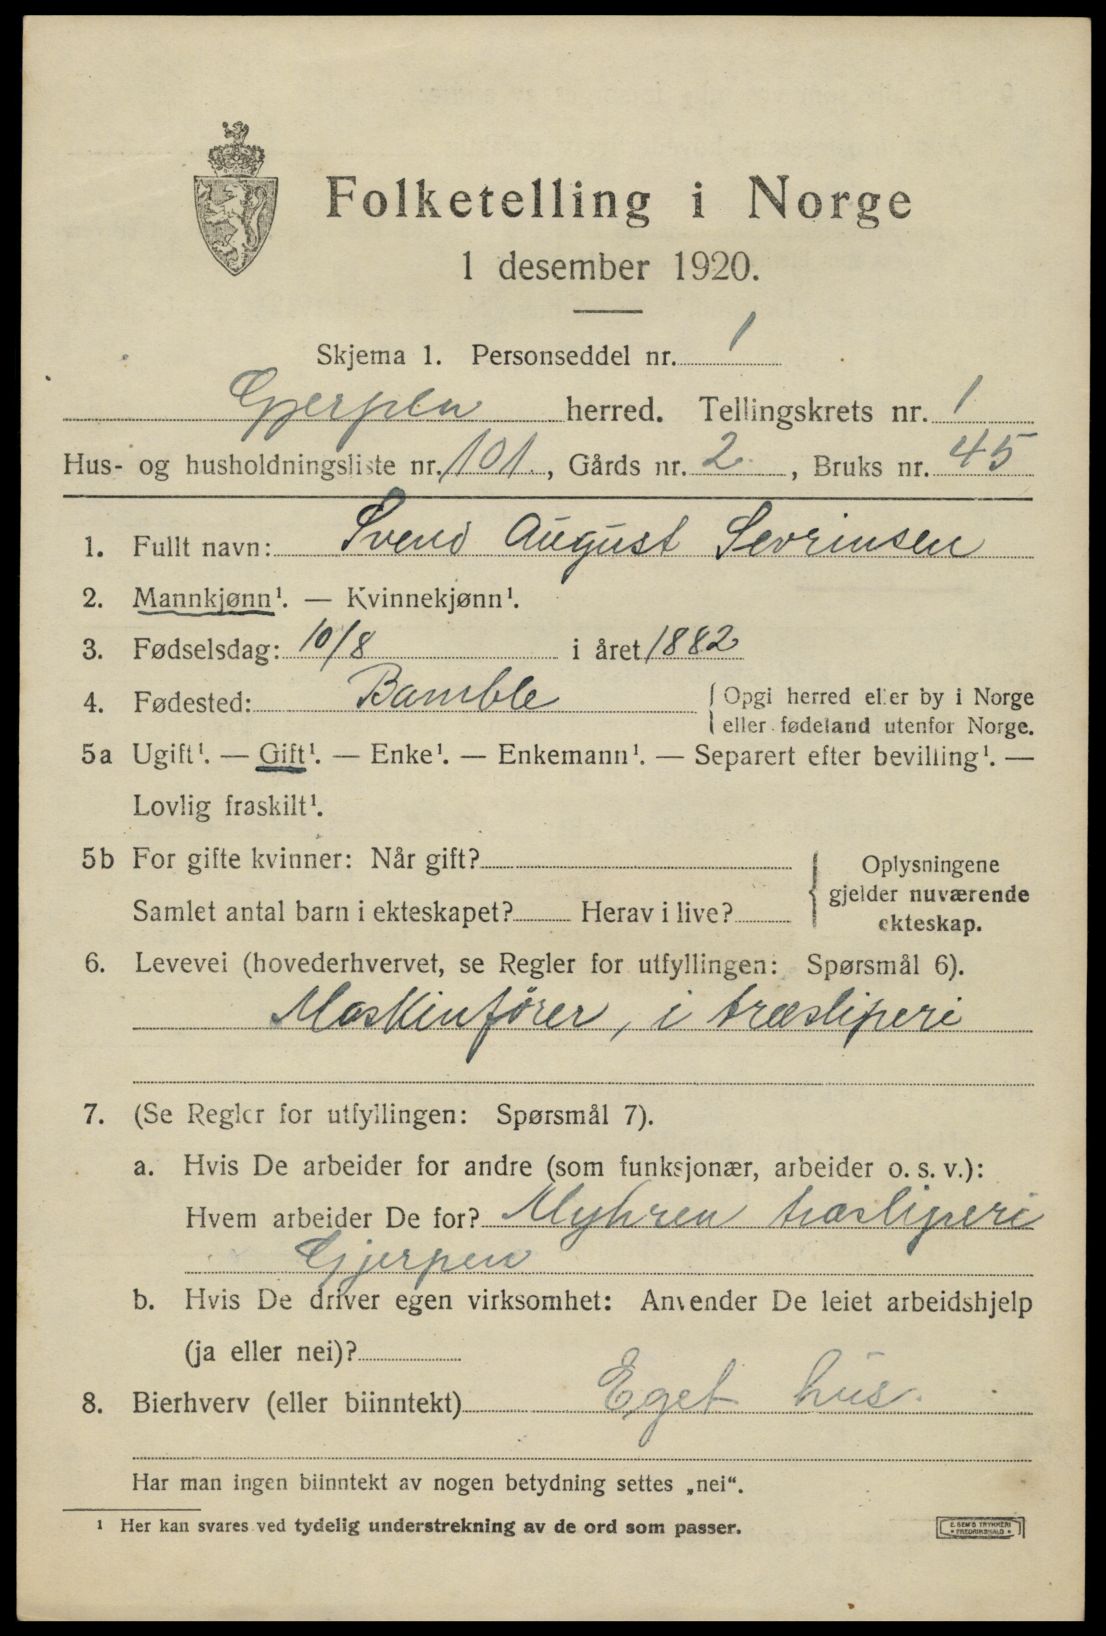 Folketelling i Norge
1 desember 1920.
Skjema 1. Personseddel nr. 1
Gjerpen herred. Tellingskrets nr. 1
Hus- og husholdningsliste nr. 101., Gårds nr. 2, Bruks nr. 45
1. Fullt navn: Svend August Sevrinsen
2. Mannkjønn¹. — Kvinnekjønn¹.
3. Fødselsdag: 10/8 i året 1882
4. Fødested: Bamble { Opgi herred eller by i Norge
eller fødeland utenfor Norge.
5a Ugift¹. — Gift¹. — Enke¹. — Enkemann¹. — Separert efter bevilling¹. —
Lovlig fraskilt¹.
5b For gifte kvinner: Når gift?
Samlet antal barn i ekteskapet? Herav i live?
Oplysningene
gjelder nuværende
ekteskap.
6. Levevei (hovederhvervet, se Regler for utfyllingen: Spørsmål 6).
Maskinfører, i træsliperi
7. (Se Regler for utfyllingen: Spørsmål 7).
a. Hvis De arbeider for andre (som funksjonær, arbeider o. s. v.):
Hvem arbeider De for? Myhren træsliperi
Gjerpen
b. Hvis De driver egen virksomhet: Anvender De leiet arbeidshjelp
(ja eller nei)?
8. Bierhverv (eller biinntekt) Eget hus.
Har man ingen biinntekt av nogen betydning settes „nei“.
¹ Her kan svares ved tydelig understrekning av de ord som passer.
E. SEM'S TRYKKERI
• FREDRIKSHALD •